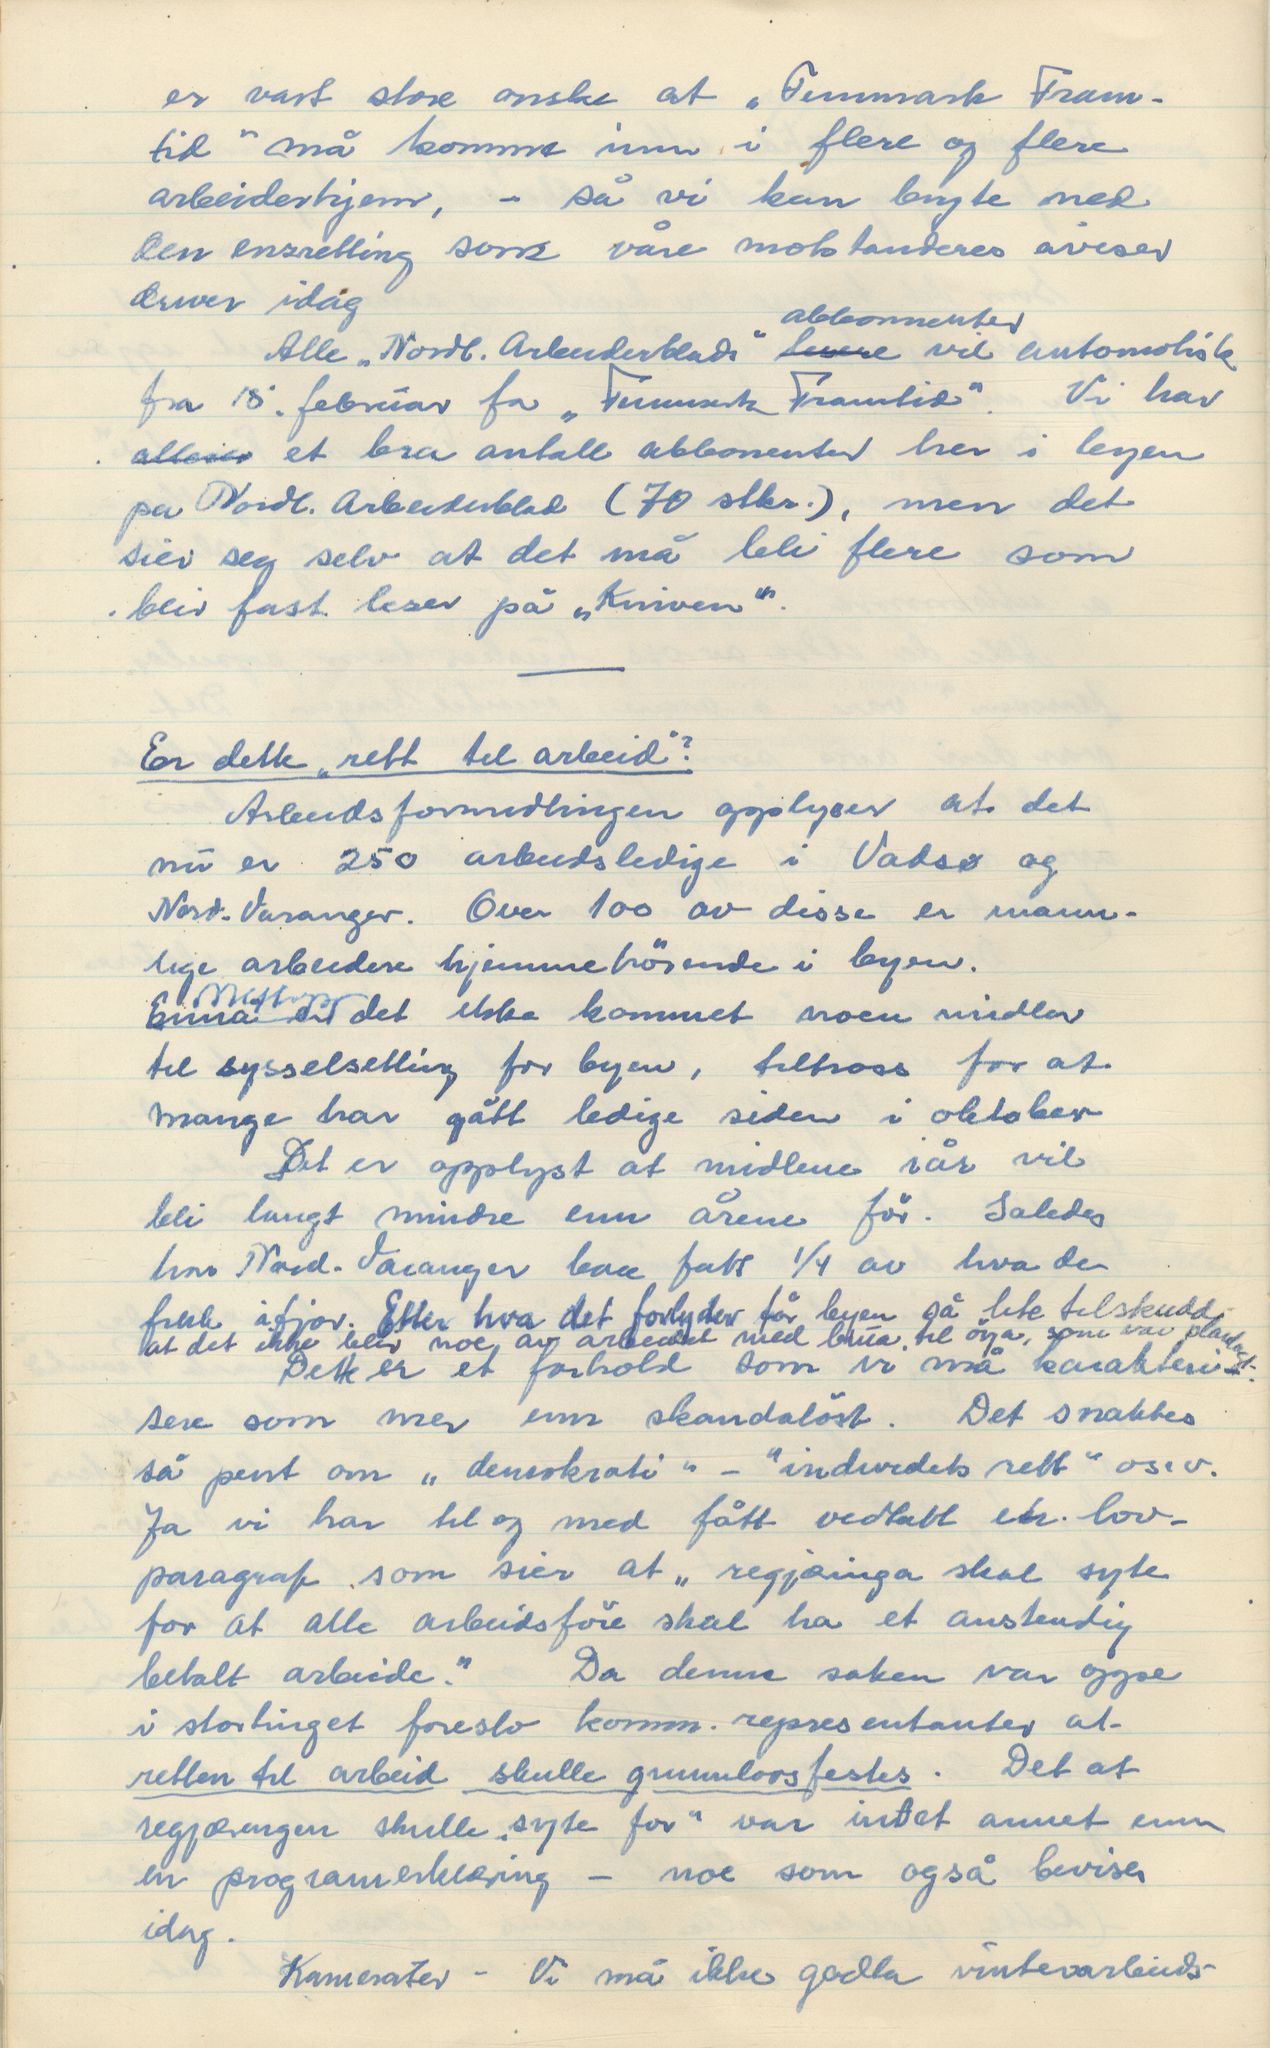 er vart store ønske at „Finnmark Fram-
tid" må komme inn i flere og flere
arbeiderhjem, - så vi kan bryte ned
den ensretting som våre motstanderes aviser
driver idag
Alle „Nordl. Arbeiderblads" lesere abbonnenter vil automatisk
fra 15. februar fa „Finnmark Framtid". Vi har
allerier et bra antall abbonenter her i byen
pa Nordl. Arbeiderblad (70 stkr.), men det
sier seg selv at det må bli flere som
blir fast leser på „Kniven".
Er dette „rett til arbeid"?
Arbeidsformidlingen opplyser at det
nu er 250 arbeidsledige i Vadsø og
Nord-Varanger. Over 100 av disse er mann-
lige arbeidere hjemmehörende i byen.
Ennå er det ikke kommet noen midler
til sysselsetting for byen, tiltross for at
mange har gått ledige siden i oktober
Det er opplyst at midlene iår vil
bli langt mindre enn årene för. Saledes
har Nord-Varanger bare fatt 1/4 av hva de
fikk ifjor. Etter hva det forlyder får byen så lite tilskudd
at det ikke blir noe av arbeidet med brua til öya, som var planlagt.
Dette er et forhold som vi må karakteri-
sere som mer enn skandalöst. Det snakkes
så pent om „demokrati" - "individets rett" osv.
Ja vi har til og med fått vedtatt en lov-
paragraf som sier at „regjeringa skal syte
for at alle arbeidsföre skal ha et anstendig
betalt arbeide." Da denne saken var oppe
i stortinget foreslo komm. representanter at
retten til arbeid skulle grunnlovsfestes. Det at
regjeringen skulle „syte for" var intet annet enn
en programerklæring - noe som også beviser
idag.
Kamerater - Vi må ikke godta vinterarbeids-